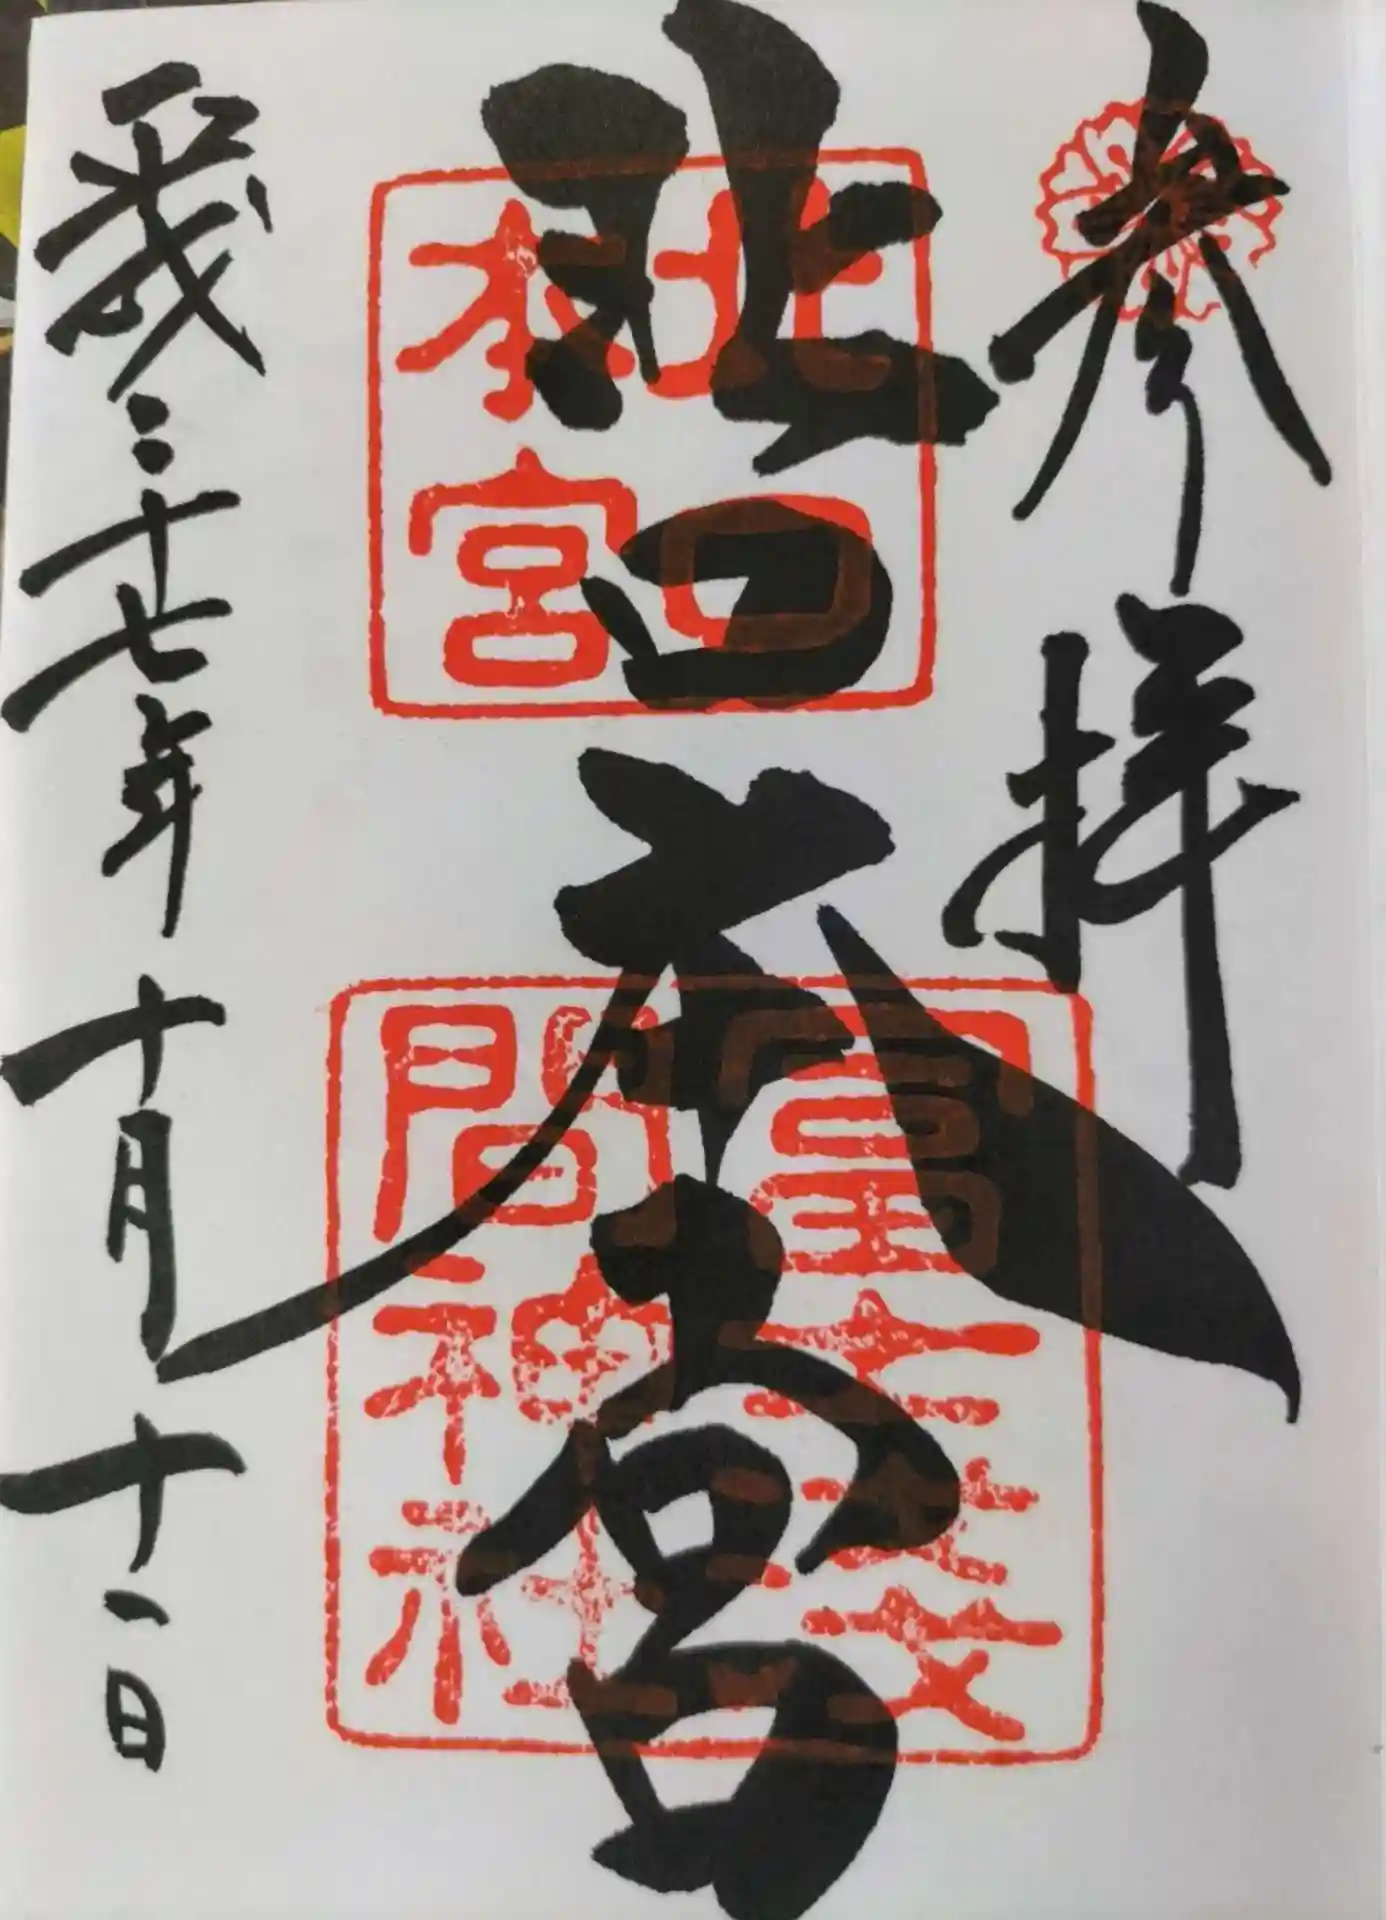 参拝
北口本宮
平成二十七年十月十一日
北口
本宮
冨士淺
間神社